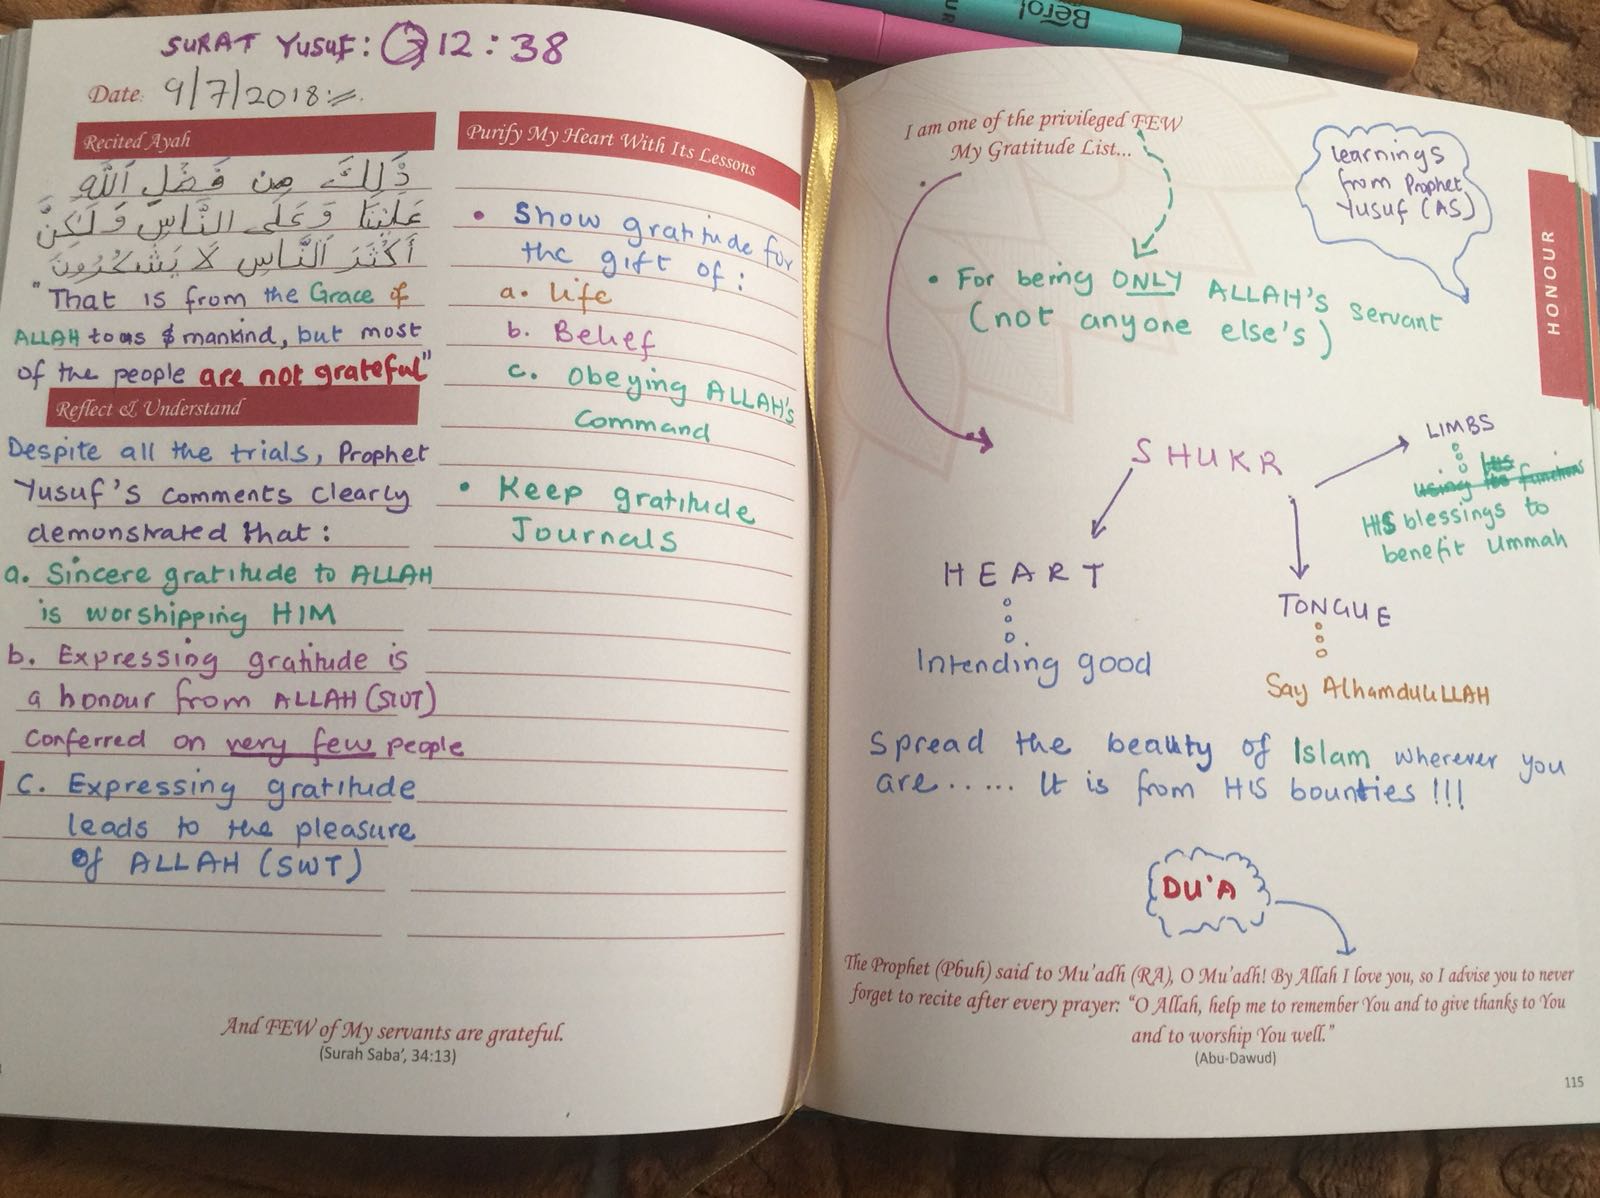 SURAT YUSUF: 12:38
Date: 9/7/2018
Recited Ayah
ذَٰلِكَ مِن فَضْلِ ٱللَّهِ
عَلَيْنَا وَعَلَى النَّاسِ وَلَٰكِنَّ
أَكْثَرَ ٱلنَّاسِ لَا يَشْكُرُونَ
"That is from the Grace of
ALLAH to us & mankind, but most
of the people are not grateful"
Reflect & Understand
Despite all the trials, Prophet
Yusuf's comments clearly
demonstrated that:
a. Sincere gratitude to ALLAH
is worshipping HIM
b. Expressing gratitude is
a honour from ALLAH (SWT)
conferred on very few people
C. Expressing gratitude
leads to the pleasure
of ALLAH (SWT)
Purify My Heart With Its Lessons
• Show gratitude for
the gift of:
a. life
b. Belief
c. obeying ALLAH's
Command
• Keep gratitude
Journals
And FEW of My servants are grateful.
(Surah Saba', 34:13)
I am one of the privileged FEW
My Gratitude List...
learnings
from Prophet
Yusuf (AS)
HONOUR
• For being ONLY ALLAH's servant
(not anyone else's)
SHUKR
LIMBS
using its functions
HIS blessings to
benefit Ummah
HEART
Intending good
TONGUE
Say AlhamduliLLAH
Spread the beauty of Islam wherever you
are...... It is from HIS bounties!!!
DU'A
The Prophet (Pbuh) said to Mu'adh (RA), O Mu'adh! By Allah I love you, so I advise you to never
forget to recite after every prayer: "O Allah, help me to remember You and to give thanks to You
and to worship You well."
(Abu-Dawud)
115
Berol
UR